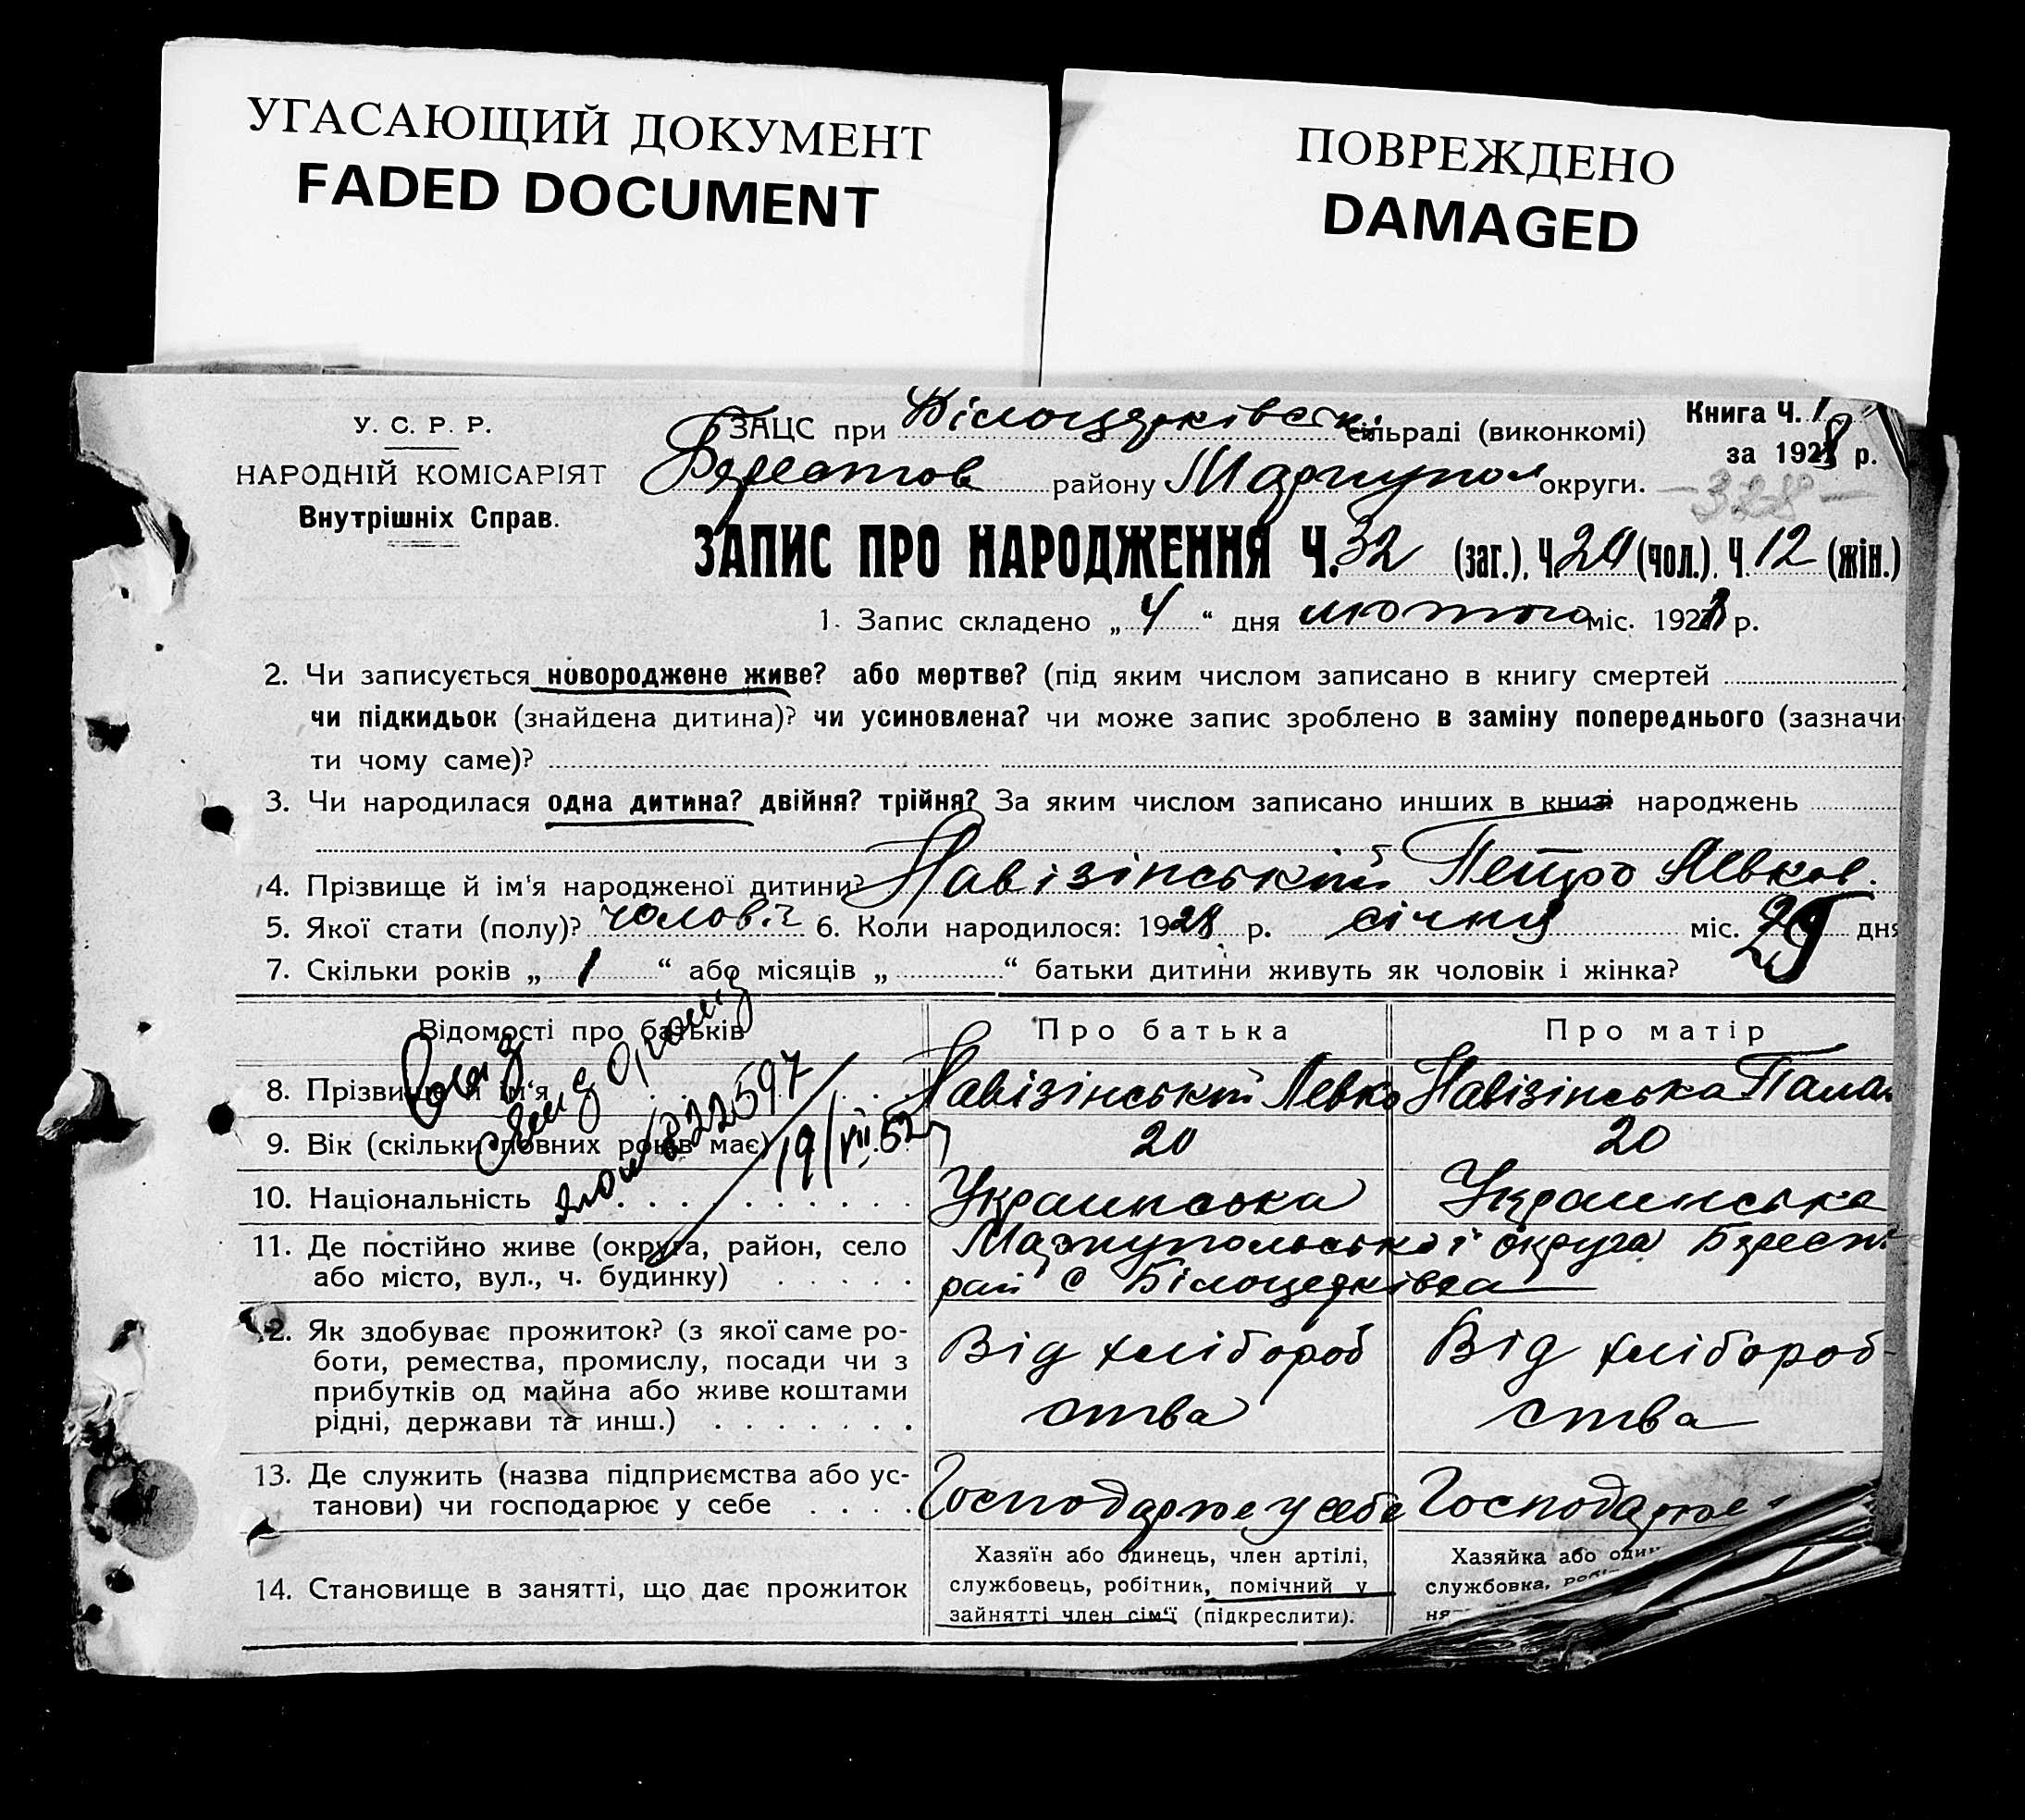 УГАСАЮЩИЙ ДОКУМЕНТ
FADED DOCUMENT
ПОВРЕЖДЕНО
DAMAGED
У. С. Р. Р.
НАРОДНІЙ КОМІСАРІЯТ
Внутрішніх Справ.
ЗАЦС при Білоцерківські сільраді (виконкомі)
Берестов району Маріупол округи.
Книга Ч. 1
за 1928 р.
-328-
ЗАПИС ПРО НАРОДЖЕННЯ Ч. 32 (заг.), Ч. 20 (чол.), Ч. 12 (жін.)
1. Запис складено „ 4 “ дня лютого міс. 1928 р.
2. Чи записується новороджене живе? або мертве? (під яким числом записано в книгу смертей )
чи підкидьок (знайдена дитина)? чи усиновлена? чи може запис зроблено в заміну попереднього (зазначи-
ти чому саме)?
3. Чи народилася одна дитина? двійня? трійня? За яким числом записано инших в книзі народжень
4. Прізвище й ім‘я народженої дитини? Навізінський Петро Левков.
5. Якої стати (полу)? чоловіч 6. Коли народилося: 1928 р. січня міс. 29 дня
7. Скільки років „ 1 “ або місяців „ “ батьки дитини живуть як чоловік і жінка?
Відомості про батьків Про батька Про матір
8. Прізвище й ім‘я Навізінський Левко Навізінська Палаж
9. Вік (скільки повних років має) 20 20
822597
19/VII 52
10. Національність Украинська Украинська
11. Де постійно живе (округа, район, село
або місто, вул., ч. будинку)
Маріупольської округа Берест.
рай с Білоцерківка
12. Як здобуває прожиток? (з якої саме ро-
боти, ремества, промислу, посади чи з
прибутків од майна або живе коштами
рідні, держави та инш.)
Від хлібороб
ства
Від хлібороб-
ства
13. Де служить (назва підприємства або ус-
танови) чи господарює у себе
Господарює у себе Господарює
14. Становище в занятті, що дає прожиток
Хазяїн або одинець, член артілі,
службовець, робітник, помічний у
зайнятті член сім‘ї (підкреслити).
Хазяйка або один
службовка,